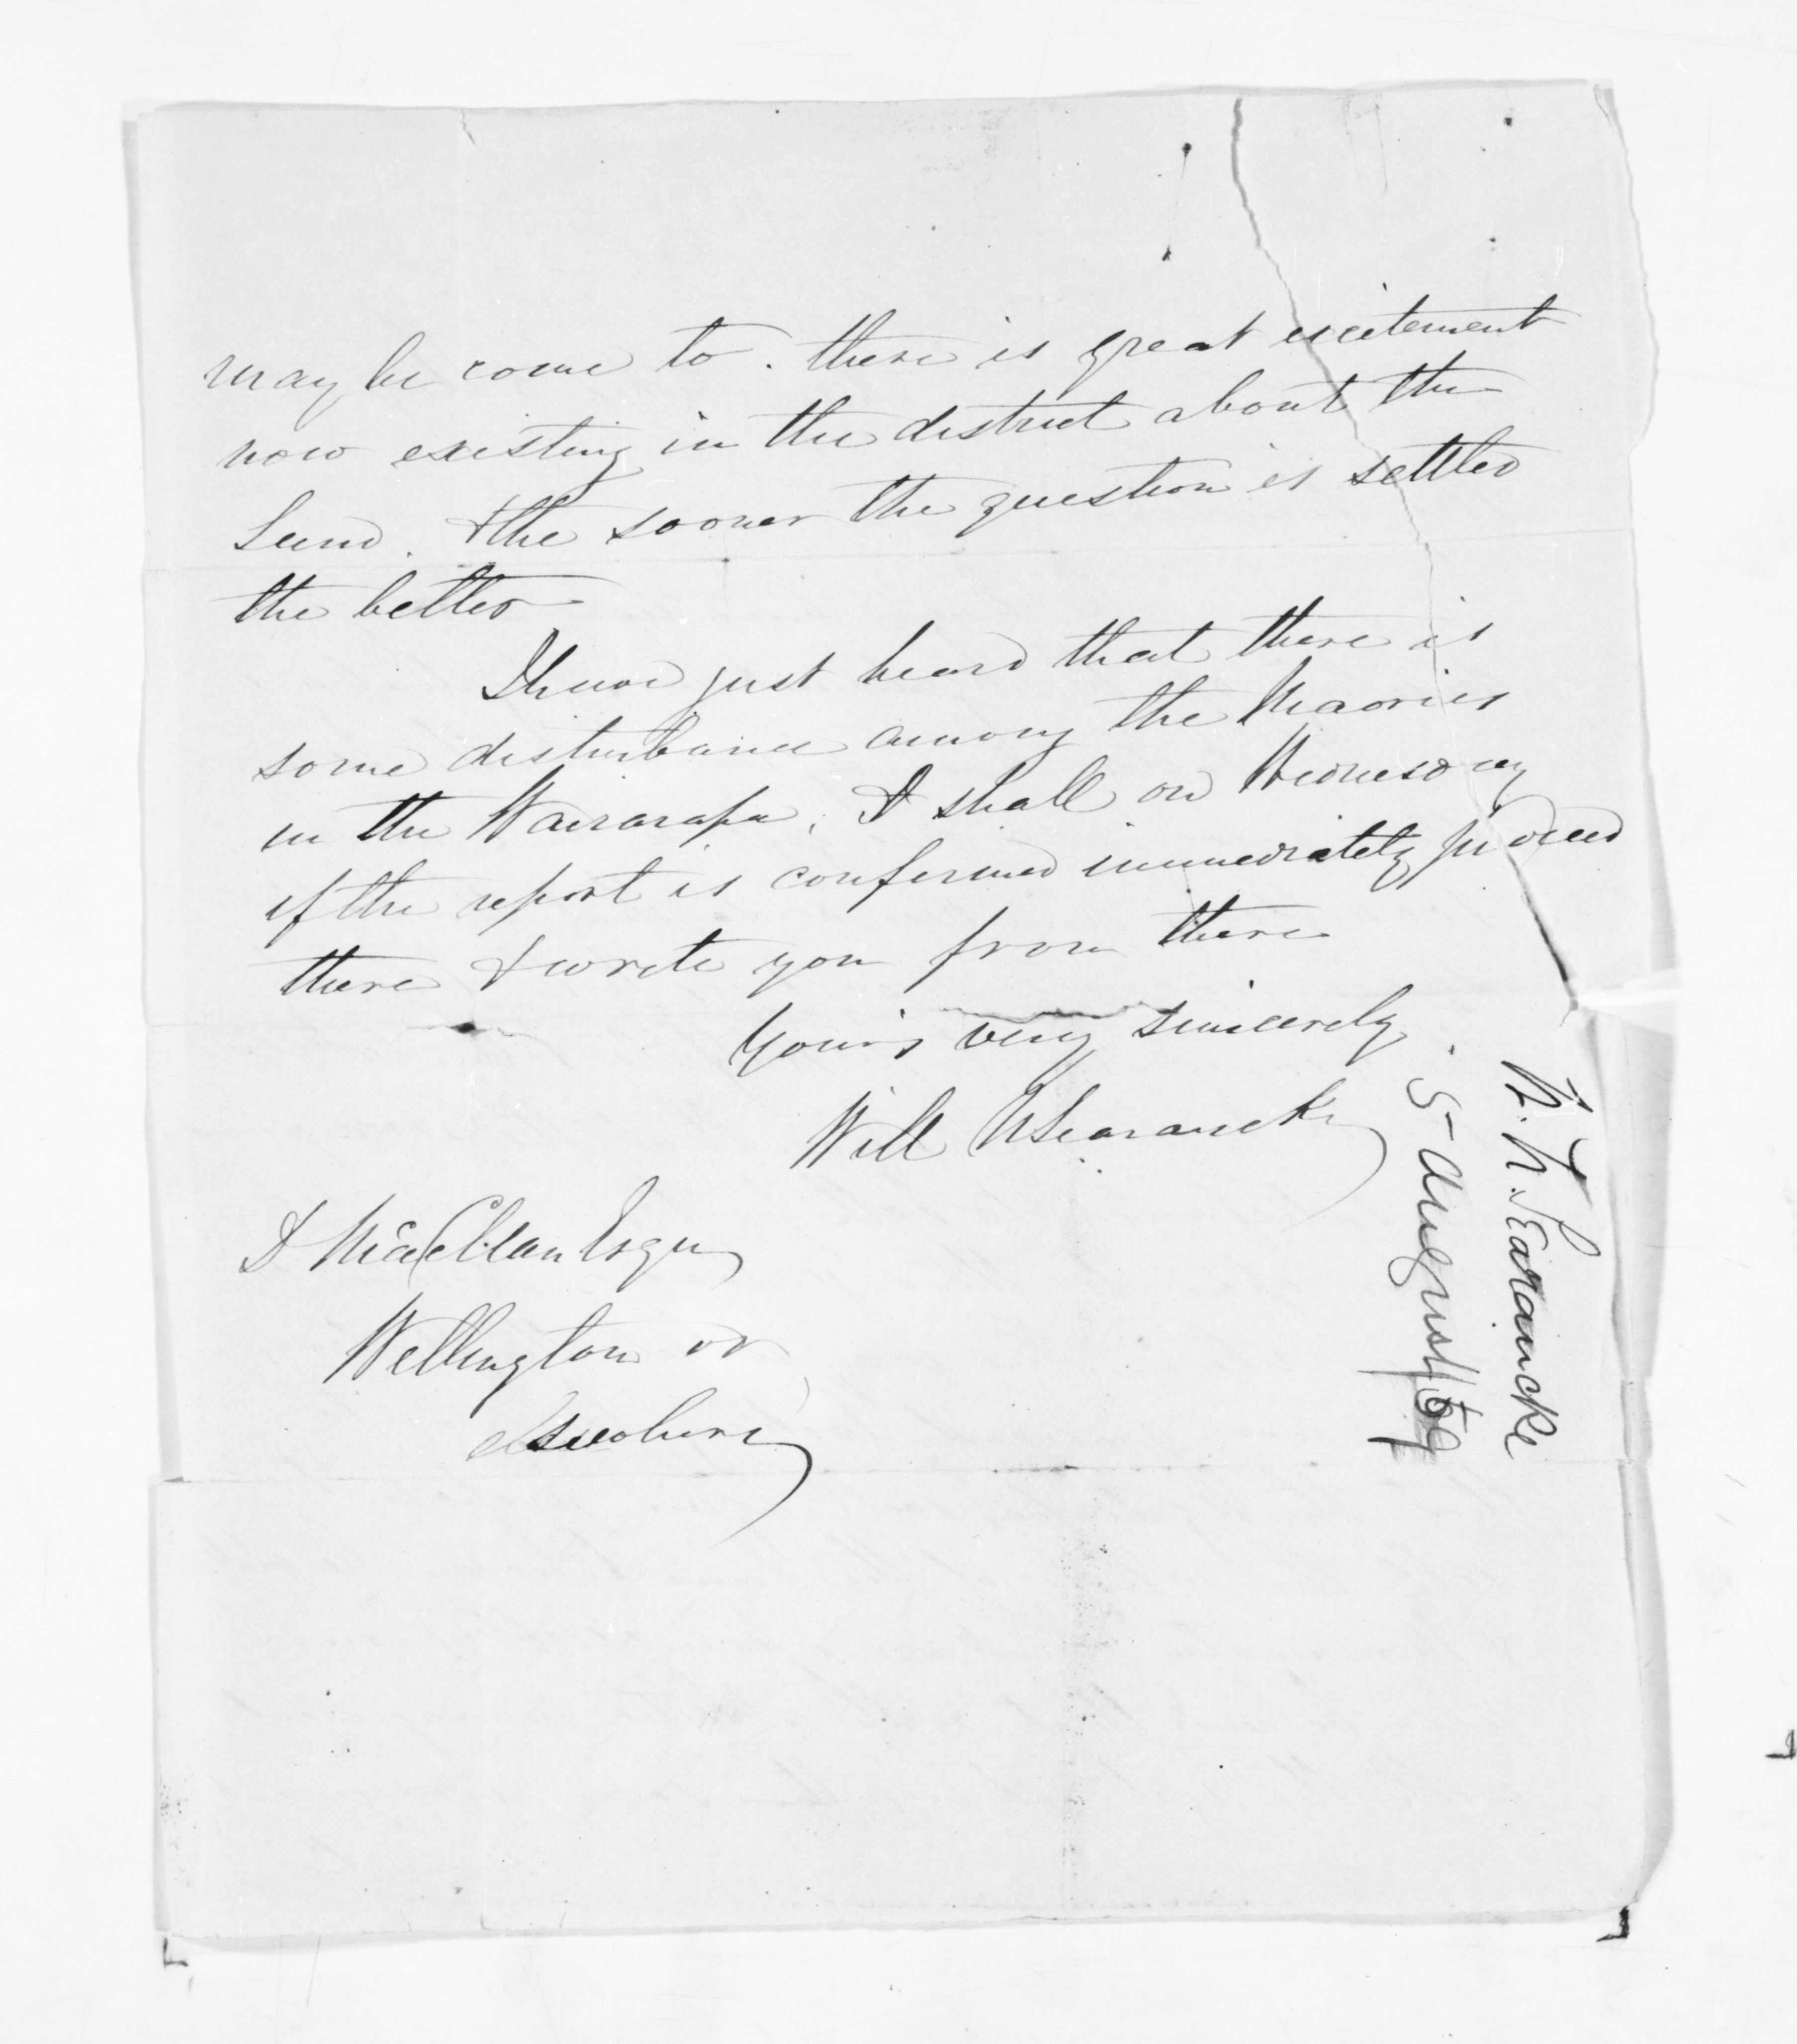 may be come to. there is great excitement
now existing in the district about the
land. & the sooner the question is settled
the better
I have just heard that there is
some disturbance among the Maories
in the Wairarapa, I shall on Wednesday
if the report is confirmed immediately proceed
there & write you from there
Yours very sincerely
Will N Searancke
D McClean Esqu
Wellington or
elsewhere
W. N. Searancke
5 August/59